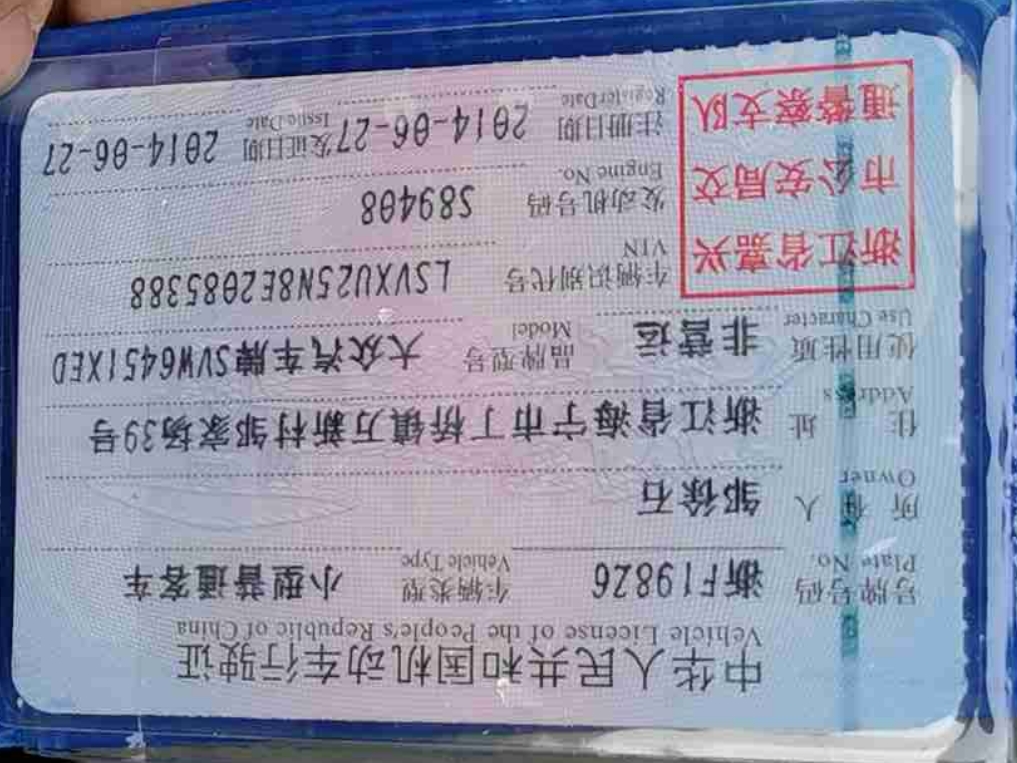 中华人民共和国机动车行驶证
Vehicle License of the People's Republic of China
号牌号码 浙F198Z6 车辆类型 小型普通客车
Plate No. Vehicle Type
所有人 邹徐石
Owner
住址 浙江省海宁市丁桥镇万新村邹家场39号
Address
使用性质 非营运 品牌型号 大众汽车牌SVW6451XED
Use Character Model
浙江省嘉兴
市公安局交
通警察支队
车辆识别代号 LSVXU25N8E2085388
VIN
发动机号码 S89408
Engine No.
注册日期 2014-06-27 发证日期 2014-06-27
Register Date Issue Date